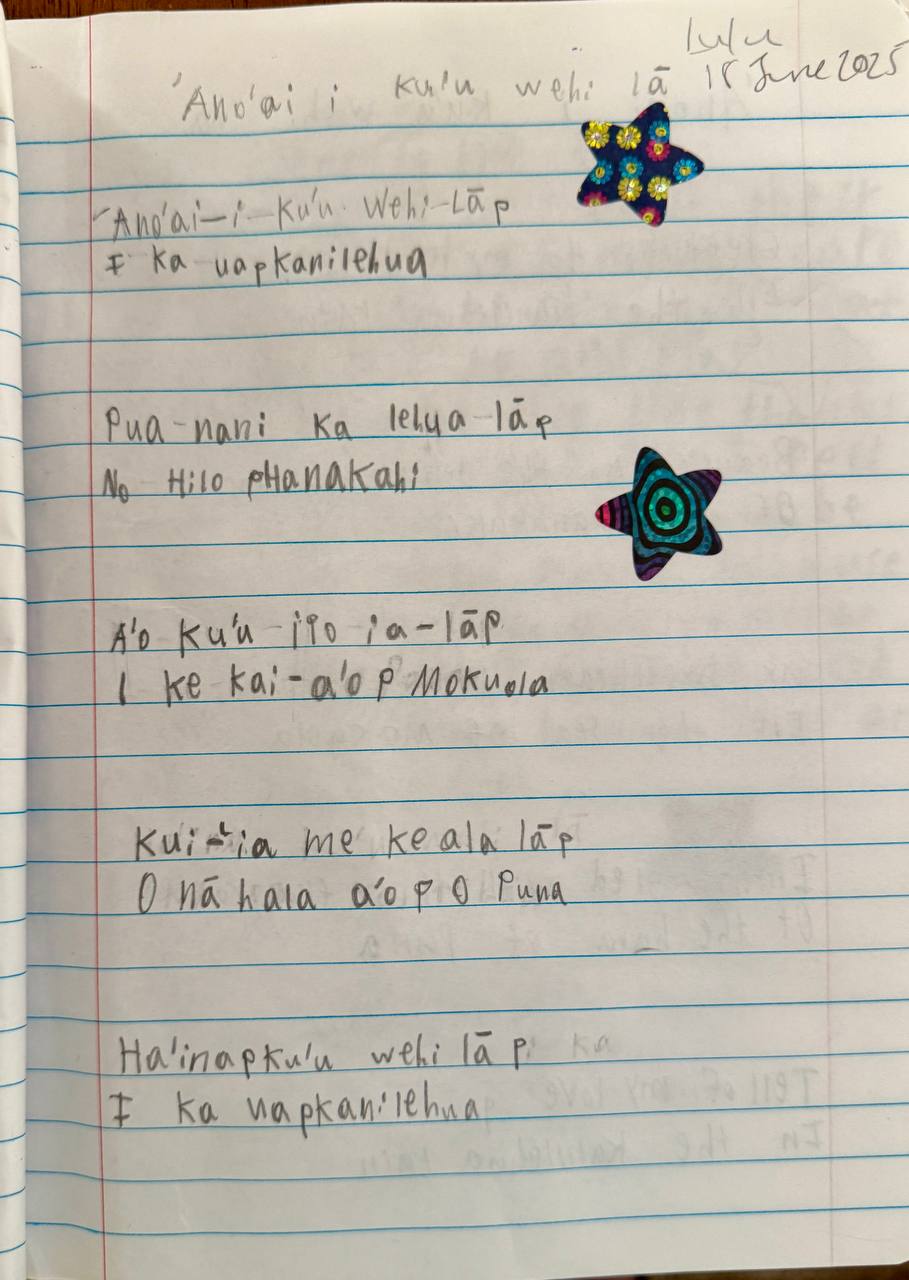 lulu
18 June 2025
'Ano'ai i ku'u wehi lā
'Ano'ai-i-Ku'u-Wehi-Lāp
I ka uapkanilehua
Pua-nani ka lehua-lāp
No Hilo pHanakahi
A'o Ku'u-ipo ia-lāp
I ke kai-a'o p Mokuola
Kui-'ia me ke ala lāp
O nā hala a'o p O Puna
Ha'inapku'u wehi lā p
I ka uapkanilehua